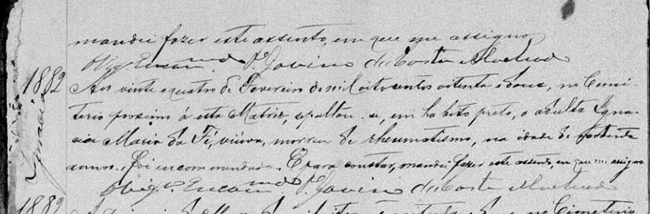 mandei fazer este assento, em que me assigno
O Vigr.º Encom.do P.e Jovino da Costa Machado
1882
Ignacia
Aos vinte e quatro de Fevereiro de mil oitocentos oitenta e dous, no Cemi
terio proximo á esta Matriz, sepultou-se, em habito preto, a adulta Igna
cia Maria da Fé, viuva, morreu de rheumatismo, na idade de
annos. Foi encommendada. E para constar, mandei fazer este assento, em que me assigno
O Vigr.º Encom.do P.e Jovino da Costa Machado
1882